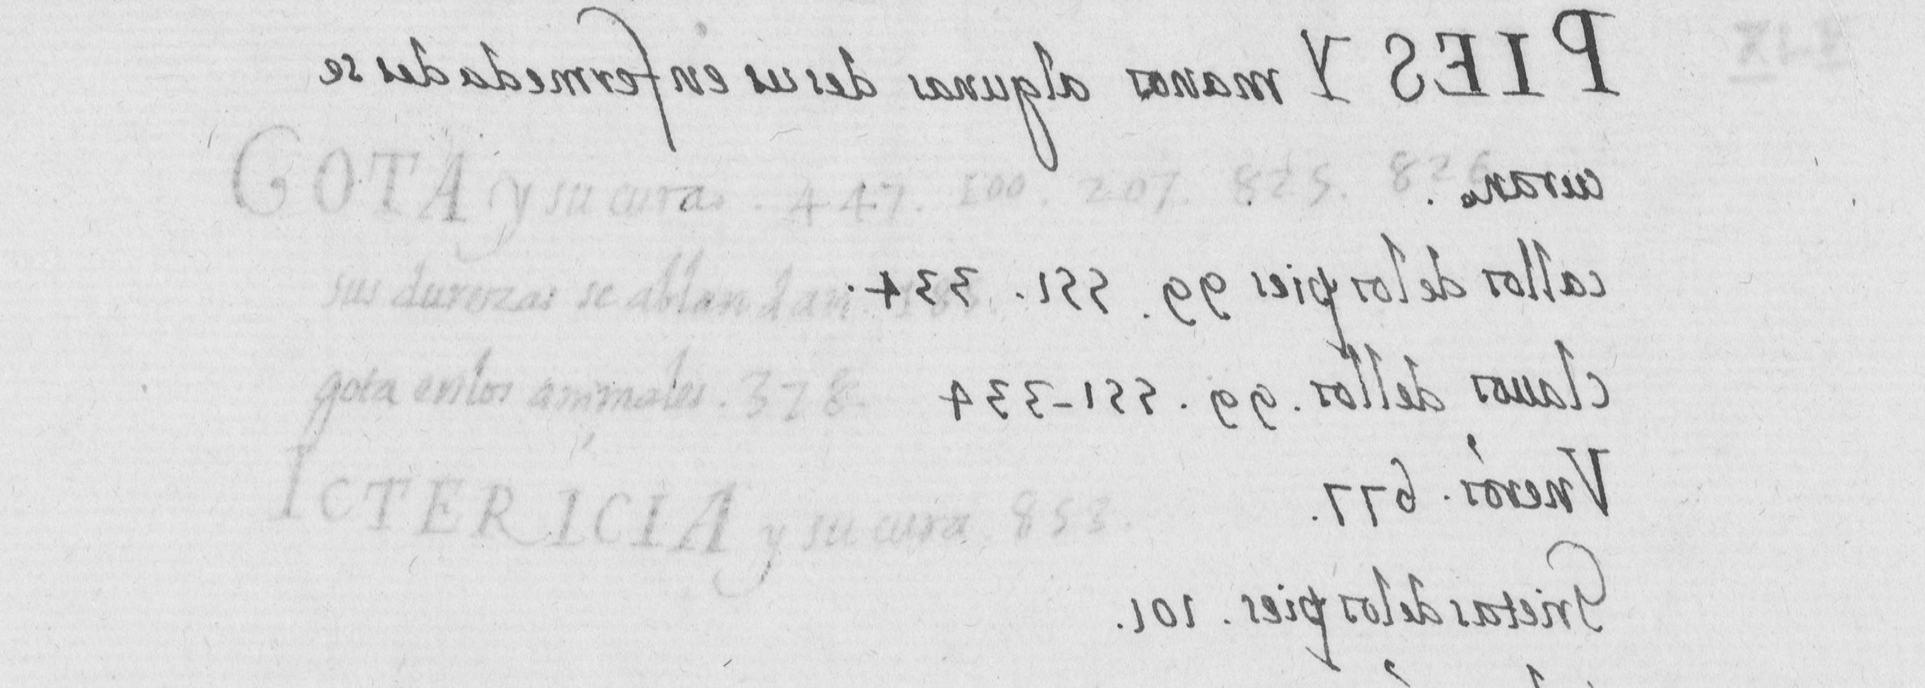 PIES Y manos algunas de sus enfermedades se
curan.
callos de los pies 99. 551. 334.
clauos dellos. 99. 551-334
Vneros. 677.
Grietas de los pies. 101.
GOTA y su cura. 447. 100. 207. 825. 826
sus durezas se ablandan.
gota en los animales. 378.
ICTERICIA y su cura. 853.